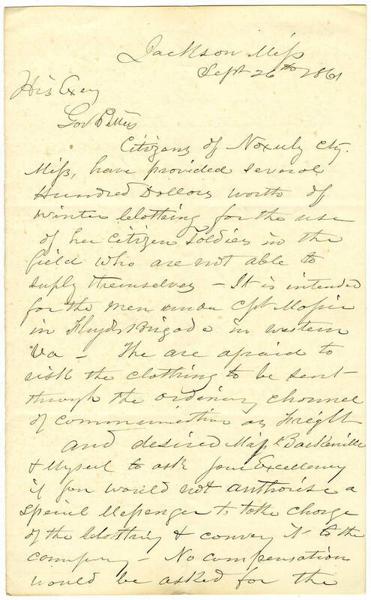 Jackson Miss
Sept 26th 1861
His Excy
Gov Pettus
Citizens of Noxuby Cty.
Miss, have provided several
Hundred Dollars worth of
Winter Clothing for the use
of her Citizen Soldies in the
field who are not able to
suply themselves – It is intended
for the men under Cpt
in Floyds Brigade in western
Va – The are afraid to
risk the clothing to be sent
through the ordinary channel
of communication as freight
and desired Maj
& Myself to ask your Excellency
if you would not authorise a
special Messenger to take charge
of the Clothing & convey it to the
company – No compensation
would be asked for the